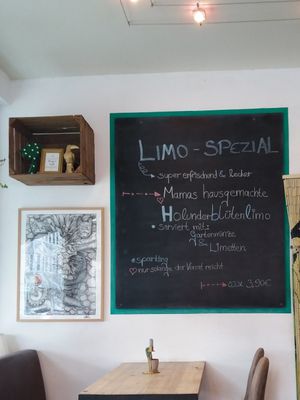 LIMO - SPEZIAL
super erfrischend & lecker
Mamas hausgemachte
Holunderblütenlimo
serviert mit:
Gartenminze
&
Limetten
sparkling
nur solange der Vorrat reicht
0,3l 3,90€